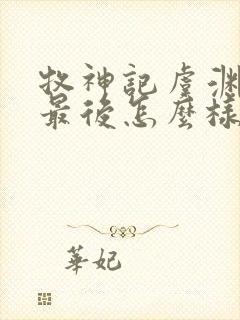 牧神記虞淵
最後怎麼樣
華妃